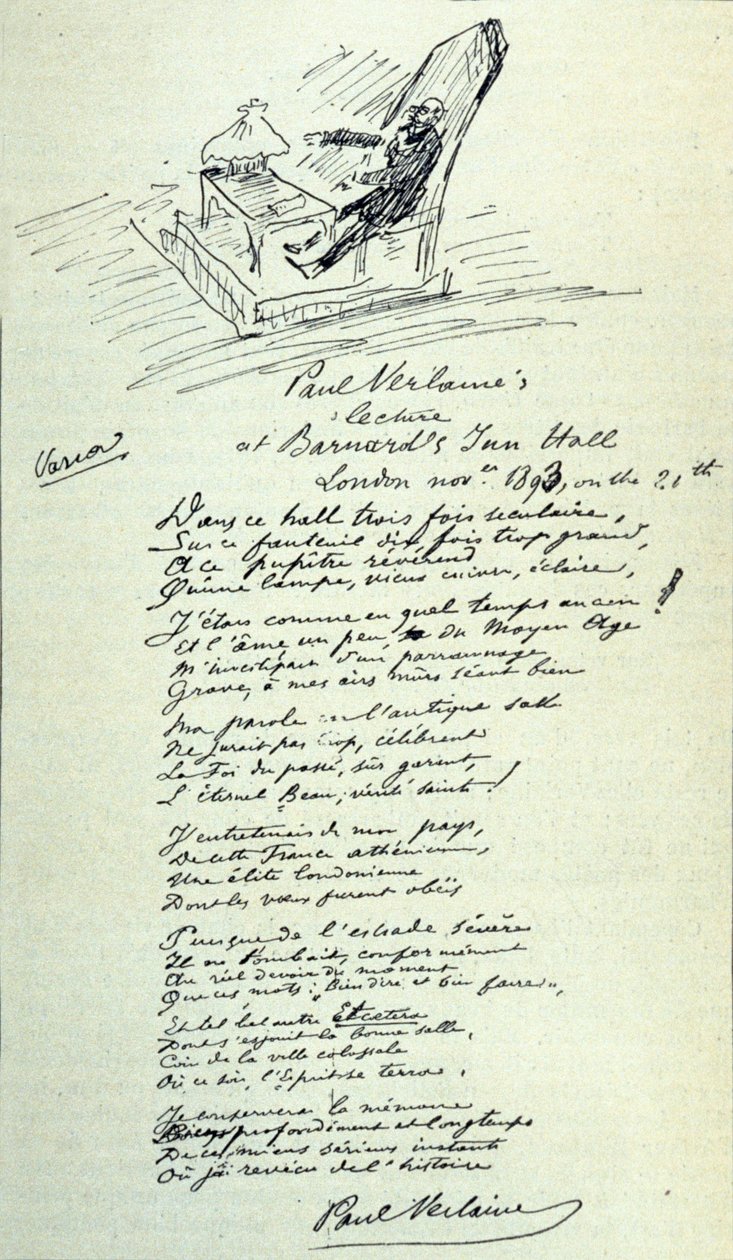 Paul Verlaine's
lecture
at Barnard's Inn Hall
London nov.er 1893, on the 21th
Dans ce hall trois fois séculaire,
Sur ce fauteuil dix fois trop grand,
A ce pupître révérend
Qu'une lampe, vieux cuivre, éclaire,
J'étais comme en quel temps ancien !
Et l'âme un peu, du Moyen Age
M'investissait d'un parrainage
Grave, à mes airs mûrs séant bien
Ma parole en l'antique salle
Ne jurait pas trop, célébrant
La Foi du passé, sûr garant,
L'éternel Beau, vérité sainte !
J'entretenais de mon pays,
De cette France athénienne,
Une élite londonienne
Dont les vœux furent obéis
Puisque de l'estrade sévère
Il ne tombait, conformément
Au réel devoir du moment
Que ces mots : "Bien dire et bien faire",
Et tel bel autre Et cætera
Dont s'esjouit la bonne salle,
Coin de la ville colossale
Où ce soir, l'Esprit se terra.
Je conserverai la mémoire
Bien profondément et longtemps
De ces miens sérieux instants
Où j'ai revécu de l'histoire
Paul Verlaine